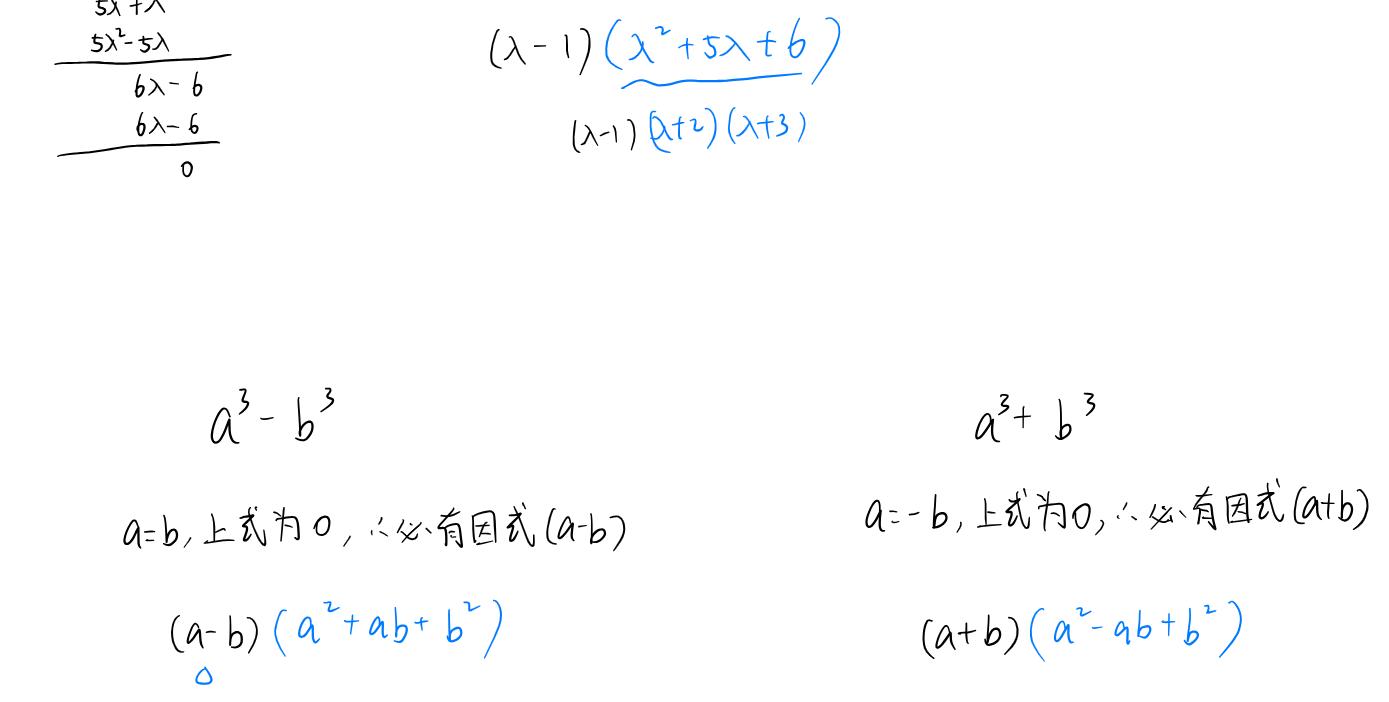 5λ²-5λ
6λ-6
6λ-6
0
(λ-1)(λ²+5λ+6)
(λ-1)(λ+2)(λ+3)
a³-b³
a=b,上式为0,∴必有因式(a-b)
(a-b)(a²+ab+b²)
0
a³+b³
a=-b,上式为0,∴必有因式(a+b)
(a+b)(a²-ab+b²)